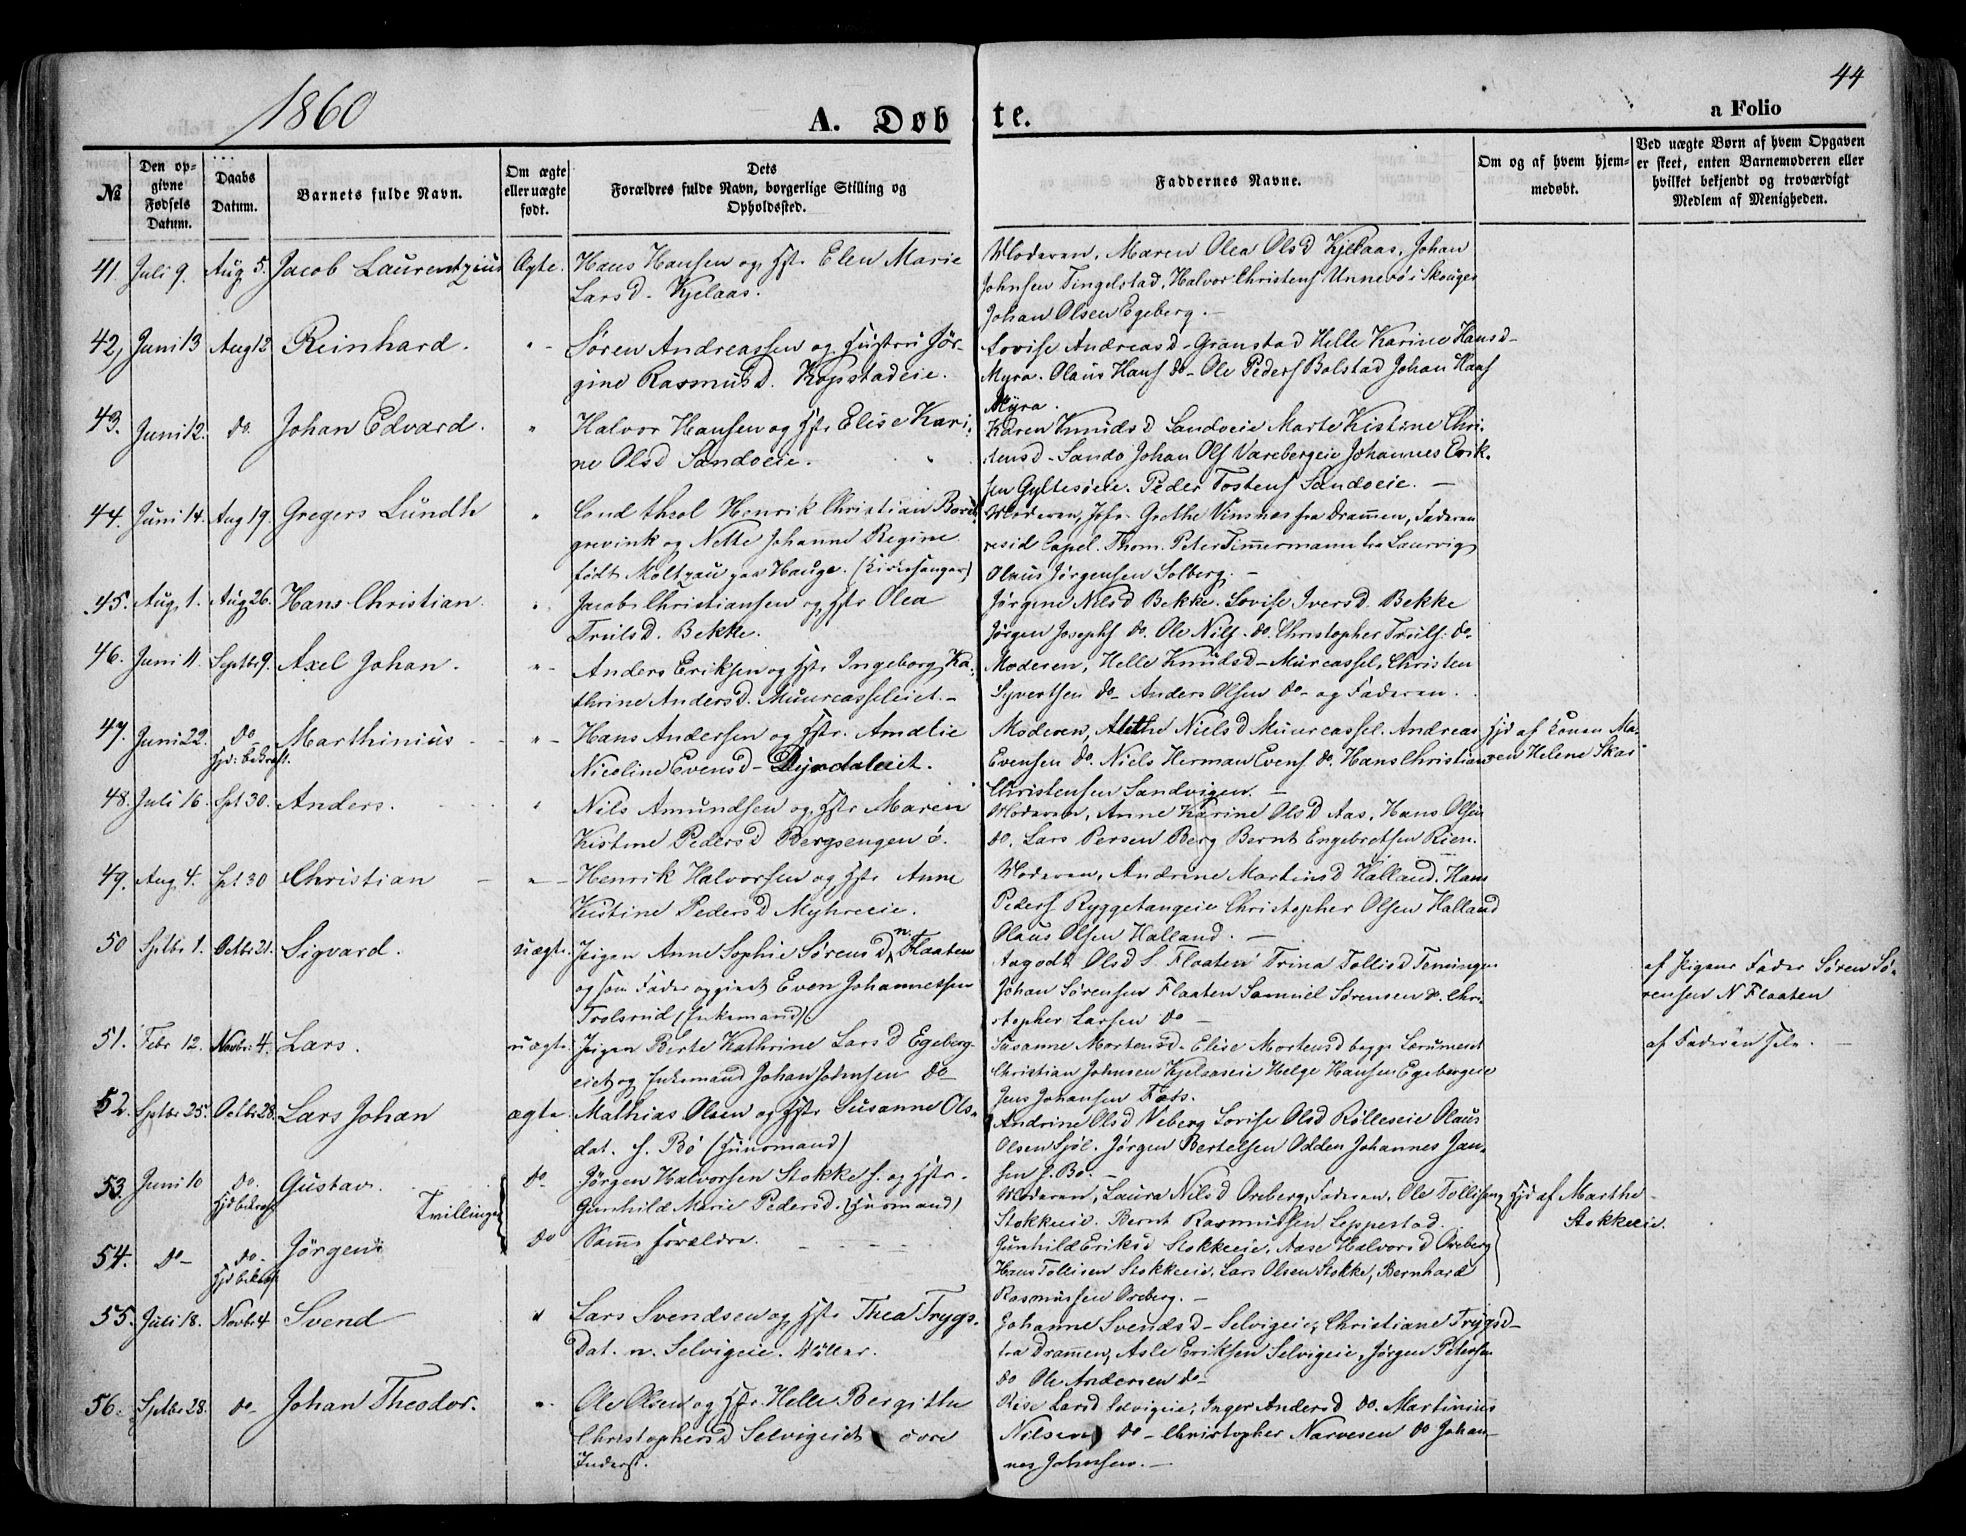 1860
44
A. Døbte.
a Folio
№
Den opgivne Fødsels Datum.
Daabs Datum.
Barnets fulde Navn.
Om ægte eller uægte født.
Dets Forældres fulde Navn, borgerlige Stilling og Opholdssted.
Faddernes Navne.
Om og af hvem hjemmedøbt.
Ved uægte Børn af hvem Opgaven er skeet, enten Barnemoderen eller hvilket bekjendt og troværdigt Medlem af Menigheden.
41. Juli 9. Aug 5. Jacob Laurentzius Ægte. Hans Hansen og Hstr Elen Marie
Larsd. Kjelaas.
Moderen, Maren Olea Olsd Kjelaas, Johan
Johnsen Tingelstad, Halvor Christens Unnerö i Skouger
Johan Olsen Egeberg. -
42, Juni 13 Aug 12 Reinhard. " - Søren Andreassen og Hustru Jør-
gine Rasmusd. Kopstadeie.
Lovise Andreasd - Granstad Helle Karine Hansd -
Myra. Olaus Hans do - Ole Peders Bolstad Johan Hans
Myra.
43. Juni 12. do. Johan Edvard. " Halvor Hansen og Hstr Elise Kari-
ne Olsd Sandoeie.
Karen Knudsd Sandoeie Marte Kistine Chri-
stensd - Sando Johan Ols Varebergeie Johannes Erik-
sen Gyltesöeie. Peder Tostens Sandoeie. -
44. Juni 14. Aug 19. Gregers Lundth " Cand theol Henrik Christian Borch
grevink og Nette Johanne Regine
født Moltzau paa Hauge. (Kirkesanger)
Moderen, Jofr. Grethe Vinsnes fra Dramen, Faderen
resid Capel. Thom. Peter Timmermann fra Laurvig
Olaus Jørgensen Solberg. -
45. Aug. 1. Aug 26. Hans Christian. " Jacob Christiansen og Hstr Olea
Trulsd. Bekke.
Jørgine Nilsd Bekke. Lovise Iversd. Bekke
Jørgen Josephs do. Ole Nils. do. Christopher Truls. do.
46. Juni 11. Septbr 9. Axel Johan. " - Anders Eriksen og Hstr Ingeborg Ka-
thrine Andersd. Muurcasseleiet. -
Moderen, Helle Knudsd - Murcassel, Christen
Syvertsen do - Anders Olsen do - og Faderen.
47. Juni 22. do Hjd: bekræft. Marthinius - " - Hans Andersen og Hstr. Amalie
Nicoline Evensd - Dyndaleiet.
Moderen, Alethe Nielsd Muurcassel. Andreas
Evensen do. Niels Herman Evens do. Hans Christian
Christensen Sandvigen. -
Hjd af Konen Ma-
ren Helene Skar
48. Juli 16. Spt 30. Anders. " Nils Amundsen og Hstr Maren
Kistine Pedersd Bergsengen ö.
Moderen, Anne Karine Olsd Aas, Hans Olsen
do. Lars Persen Berg Bernt Engebretsen Rien.
49. Aug 4. Spt 30 Christian - " - Henrik Halvorsen og Hstr Anne
Kistine Pedersd Myhreeie.
Moderen, Andrine Martinsd Halland. Hans
Peders Ryggetangeie Christopher Olsen Halland
Olaus Olsen Halland. -
50 Sptbr 1. Octbr 21. Sigvard. uægte. Pigen Anne Sophie Sørensd n. Flaaten
og som Fader opgivet Even Johannessen
Trolsrud (Enkemand).
Aagodt Olsd S. Flaaten Trina Tollisd
Johan Sørensen Flaaten Samuel Sørensen do. Chri-
stopher Larsen do -
af Pigens Fader Søren Sø-
rensen N Flaaten
51. Febr 12. Novbr. 4. Lars. uægte. Pigen Berte Kathrine Larsd Egeberg-
eiet og Enkemand Johan Johnsen do -
Susanne Mortensd. Elise Mortensd begge Lerumeiet
Christian Johnsen Kjelaaseie Helge Hansen Egebergeie
Jens Johansen Foss.
af Faderen selv. -
52. Sptbr 25. Octbr 28. Lars Johan ægte. Mathias Olsen og Hstr Susanne Ols-
dat. s. Bö (Huusmand)
Andrine Olsd Veberg Lovise Olsd Rölleseie Olaus
Olsen Sjöl. Jørgen Bertelsen Odden Johannes Jan-
sen s. Bö. -
53. Juni 10 do. Hjd bekræft Gustav. Tvillinger do - Jørgen Halvorsen Stokke s. og Hstr.
Gunhild Marie Pedersd. (Huusmand)
Moderen, Laura Nilsd Oreberg, Faderen, Ole Tollisen
Stokkeeie. Bernt Rasmussen Leppestad.
Hjd af Marthe
Stokkeeie.
54. do - do - Hjd bekræft Jörgen do Samme Forældre. - - - -
Gunhild Eriksd Stokkeeie, Aase Halvorsd Oreberg
Hans Tollisen Stokkeeie. Lars Olsen Stokke, Bernhard
Rasmussen Oreberg. -
55. Juli 18. Novbr 4 Svend " Lars Svendsen og Hstr Thea Trygs-
dat. n. Selvigeie.
Johanne Svendsd - Selvigeie, Christiane Trygsd -
fra Dramen, Asle Eriksen Selvigeie, Jørgen Petersen
do Ole Andersen do -
56. Sptbr 28. do - Johan Theodor. " Ole Olsen og Hstr. Helle Bergithe
Christophersd Selvigeiet övre
Inderst.
Rise Larsd Selvigeie, Inger Andersd do. Martinius
Nilsen do - Christopher Narvesen do Johan-
nes Johnsen. -